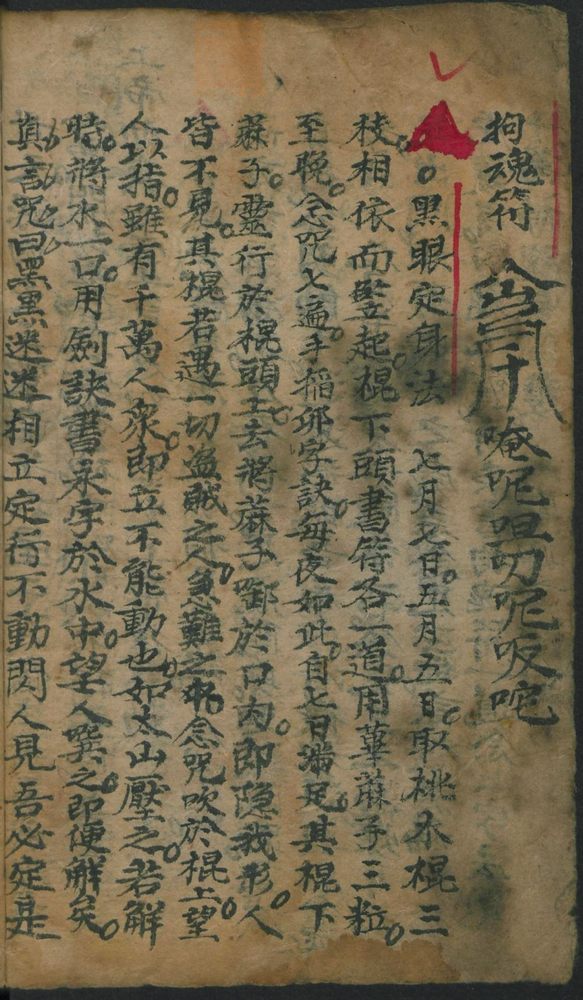 拘魂符 唵呢呾叨呢吸咜
黑眼定身法 七月七日五月五日取桃木棍三
枝相依而豎起棍下頭書符各一道用萆蔴子三粒
至晚念咒七遍手稻邜字訣每夜如此自七日滿足其棍下
蔴子靈行於棍頭上去將蔴子啣於口內即隐我形人
皆不見其棍若遇一切盗賊之人急難之念咒吹於棍上望
人以指雖有千萬人衆即立不能動也如太山壓之若解
時將水一口用劍訣書永字於水中望人噀之即便解矣
真言咒曰黑黑迷迷相立定行不動閃人見吾必定是